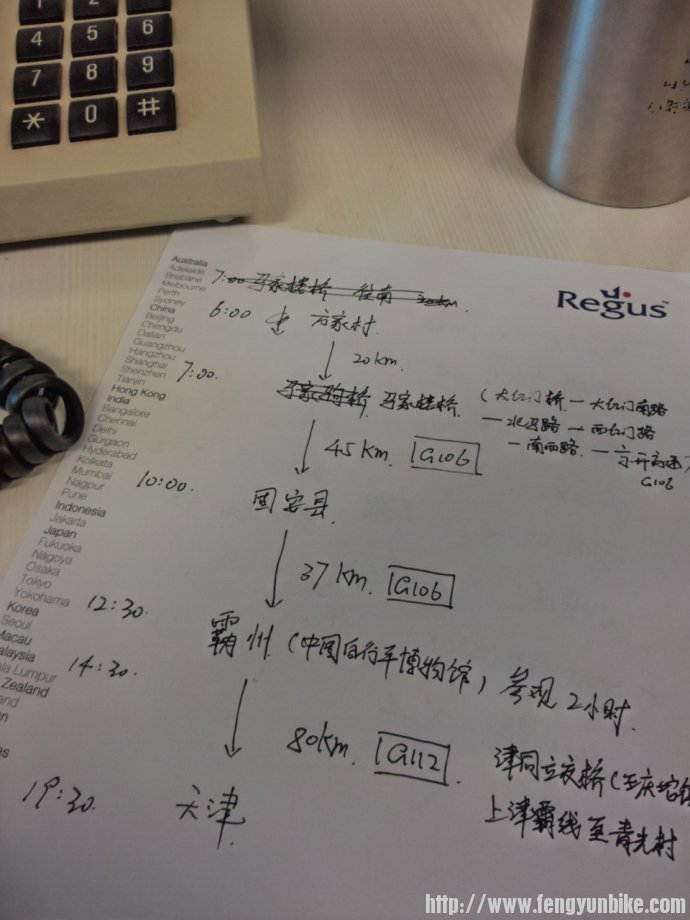 1 2 3
4 5 6
7 8 9
* 0 #
Regus™
Australia
Adelaide
Brisbane
Melbourne
Perth
Sydney
China
Beijing
Chengdu
Dalian
Guangzhou
Hangzhou
Shanghai
Shenzhen
Tianjin
Hong Kong
India
Bangalore
Chennai
Delhi
Gurgaon
Hyderabad
Kolkata
Mumbai
Nagpur
Pune
Indonesia
Jakarta
Japan
Fukuoka
Nagoya
Osaka
Tokyo
Yokohama
Korea
Seoul
Macau
alaysia
la Lumpur
Zealand
land
7:00 马家楼桥 往南 20km
6:00 方家村
20km.
7:00. 马家驹桥 马家楼桥 (大红门桥—大红门南路
—西红门路
—南西路—京开高速)
G106
45km. G106
10:00. 固安县
37km. G106
12:30.
霸州 (中国自行车博物馆) 参观2小时.
14:30.
80km. G112
津同立交桥(王庆坨镇
上津霸线至青光村
19:30. 天津
http://www.fengyunbike.com